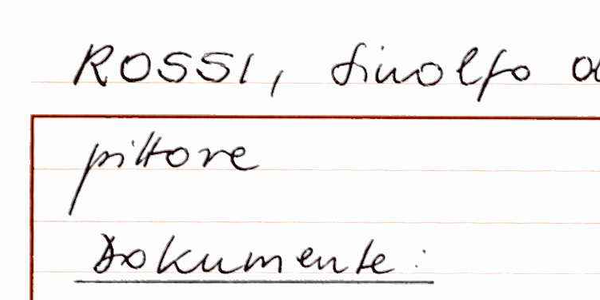 ROSSI, Sinolfo
pittore
Dokumente: